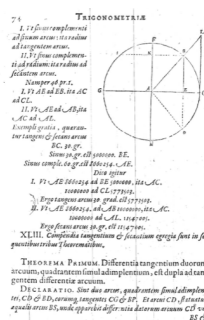 74 TRIGONOMETRIÆ
I. Ut sinus complementi
ad sinum arcus: ita radius
ad tangentem arcus.
II. Ut sinus complemen-
ti ad radium: ita radius ad
secantem arcus.
Namper 46 pr. 1.
I. Ut AE ad EB. ita AC
ad CL.
II. Ut AE ad AB, ita
AC ad AL.
Exempli gratia, quæran-
tur tangens & secans arcus
BC. 30. gr.
Sinus 30. gr. est 5000000. BE.
Sinus comple. 60. gr. est 8660254. AE.
Dico igitur
I. Ut AE 8660254 ad BE 5000000. ita AC.
10000000 ad CL 5773503.
Ergo tangens arcus 30 grad. est 5773503.
II. Ut AE 8660254. ad AB 10000000, ita AC.
10000000 ad AL. 11547005.
Ergo secans arcus 30. gr. est 11547005.
XLIII. Compendia tangentium & secantium egregia sunt in se-
quentibus tribus Theorematibus.
THEOREMA PRIMUM. Differentia tangentium duorum
arcuum, quadrantem simul adimplentium, est dupla ad tan-
gentem differentiæ arcuum.
DECLARATIO. Sint duo arcus, quadrantem simul adimplen-
tes, CD & BD, eorumq, tangentes CG & BP. Et arcui CD. statuatur
æqualis arcus BS, unde apparebit differentia duorum arcuum CD